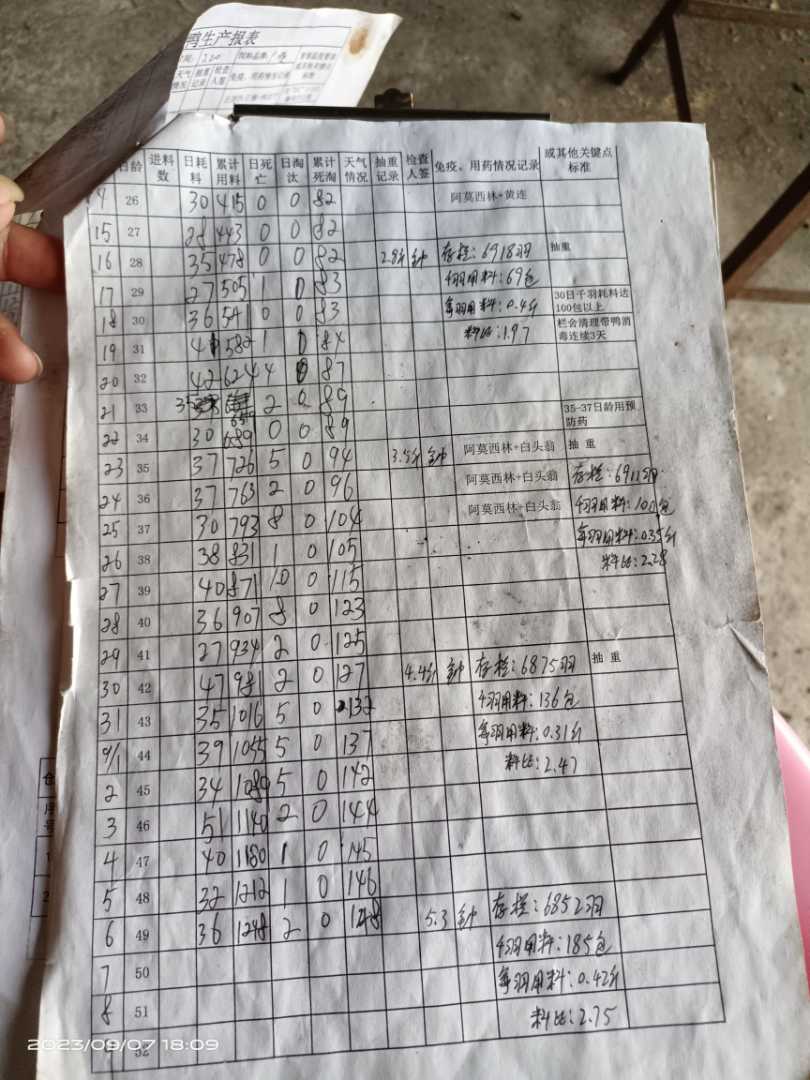 鸭生产报表
日龄 进料数 日耗料 累计用料 日死亡 日淘汰 累计死淘 天气情况 抽重记录 检查人签 免疫、用药情况记录 或其他关键点标准
26 30 415 0 0 82 阿莫西林+黄连
15 27 28 443 0 0 82
16 28 35 478 0 0 82 2.8斤 钟 存栏:6918羽 抽重
17 29 27 505 1 0 83 千羽用料:69包
18 30 36 541 0 0 83 每羽用料:0.4斤 30日千羽耗料达100包以上
19 31 41 582 1 0 84 料比:1.97 栏舍清理带鸭消毒连续3天
20 32 42 624 4 0 87
21 33 35 659 2 0 89
22 34 30 689 0 0 89 35-37日龄用预防药
23 35 37 726 5 0 94 3.5斤 钟 阿莫西林+白头翁 抽重
24 36 37 763 2 0 96 阿莫西林+白头翁 存栏:6911羽
25 37 30 793 8 0 104 阿莫西林+白头翁 千羽用料:100包
26 38 38 831 1 0 105 每羽用料:0.35斤
27 39 40 871 10 0 115 料比:2.28
28 40 36 907 8 0 123
29 41 27 934 2 0 125
30 42 47 981 2 0 127 4.4斤 钟 存栏:6875羽 抽重
31 43 35 1016 5 0 132 千羽用料:136包
9/1 44 39 1055 5 0 137 每羽用料:0.31斤
2 45 34 1089 5 0 142 料比:2.47
3 46 51 1140 2 0 144
4 47 40 1180 1 0 145
5 48 32 1212 1 0 146
6 49 36 1248 2 0 148 5.3 钟 存栏:6852羽
7 50 千羽用料:185包
8 51 每羽用料:0.42斤
52 料比:2.75
2023/09/07 18:09